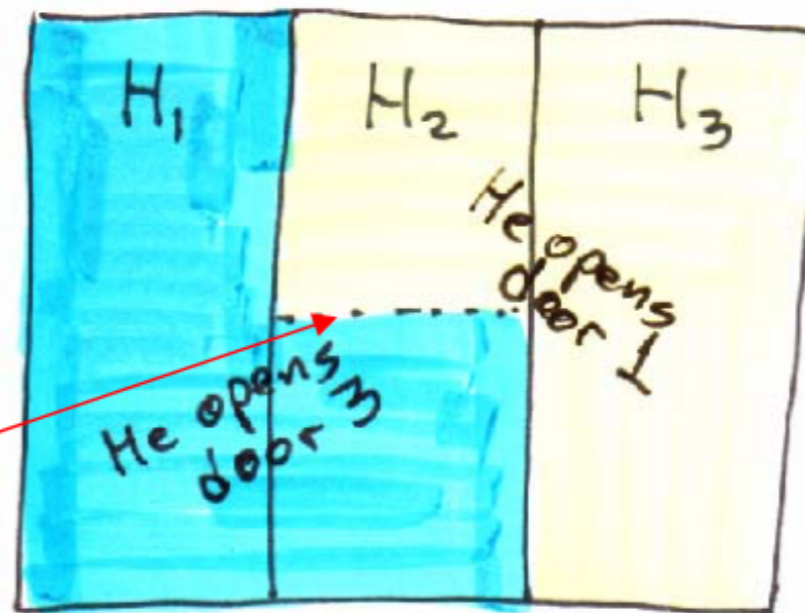 H₁
H₂
H₃
He opens
door 1
He opens
door 3